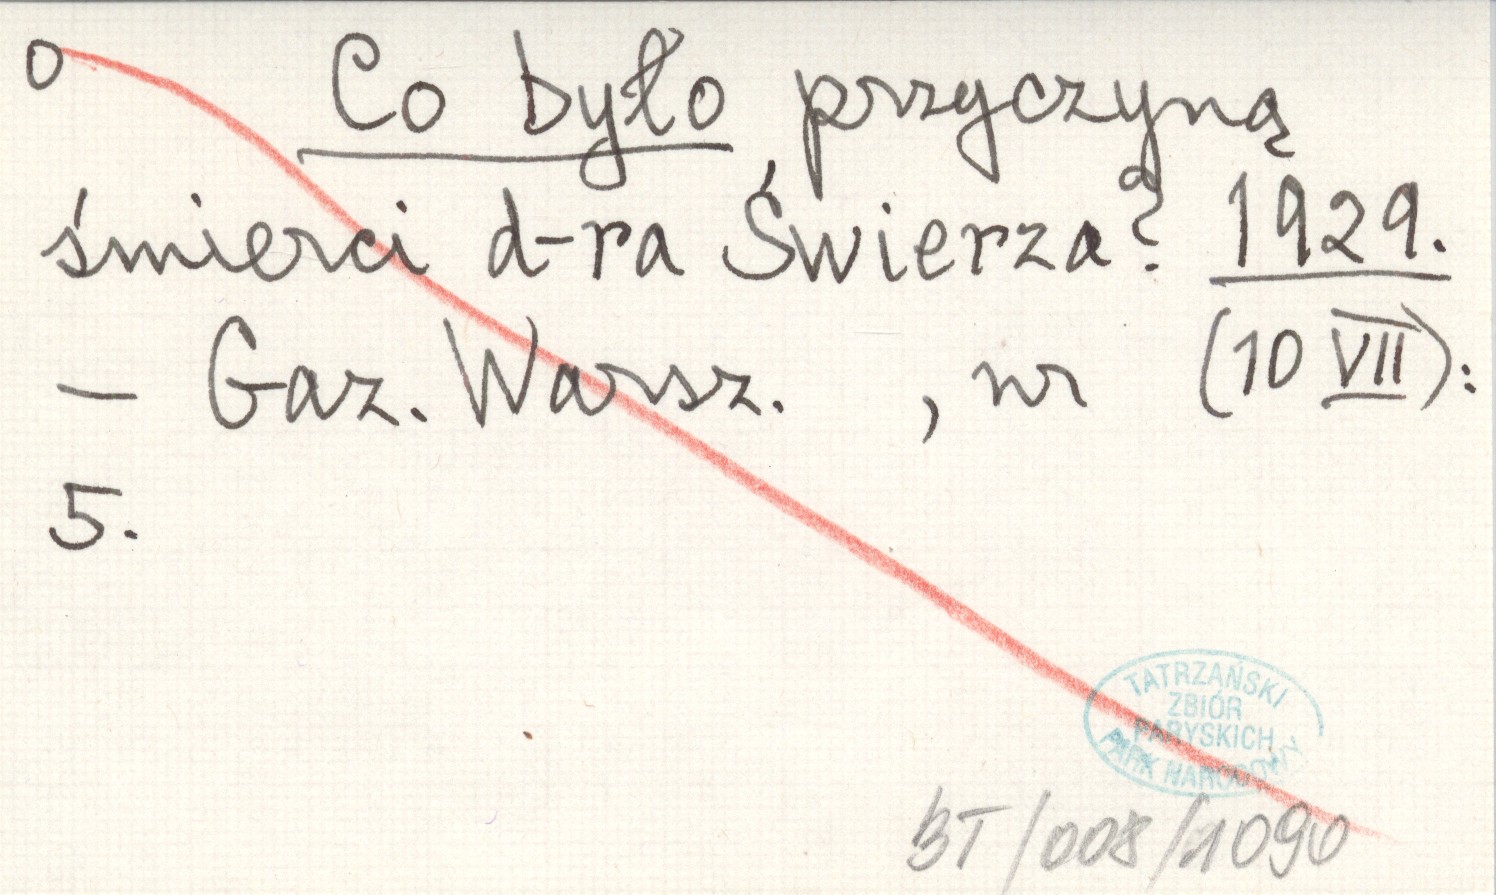 o Co było przyczyną
śmierci d-ra Świerza? 1929.
– Gaz. Warsz. , nr (10 VII):
5.
TATRZAŃSKI
ZBIÓR
PARYSKICH
PARK NARODOWY
BT/008/1090